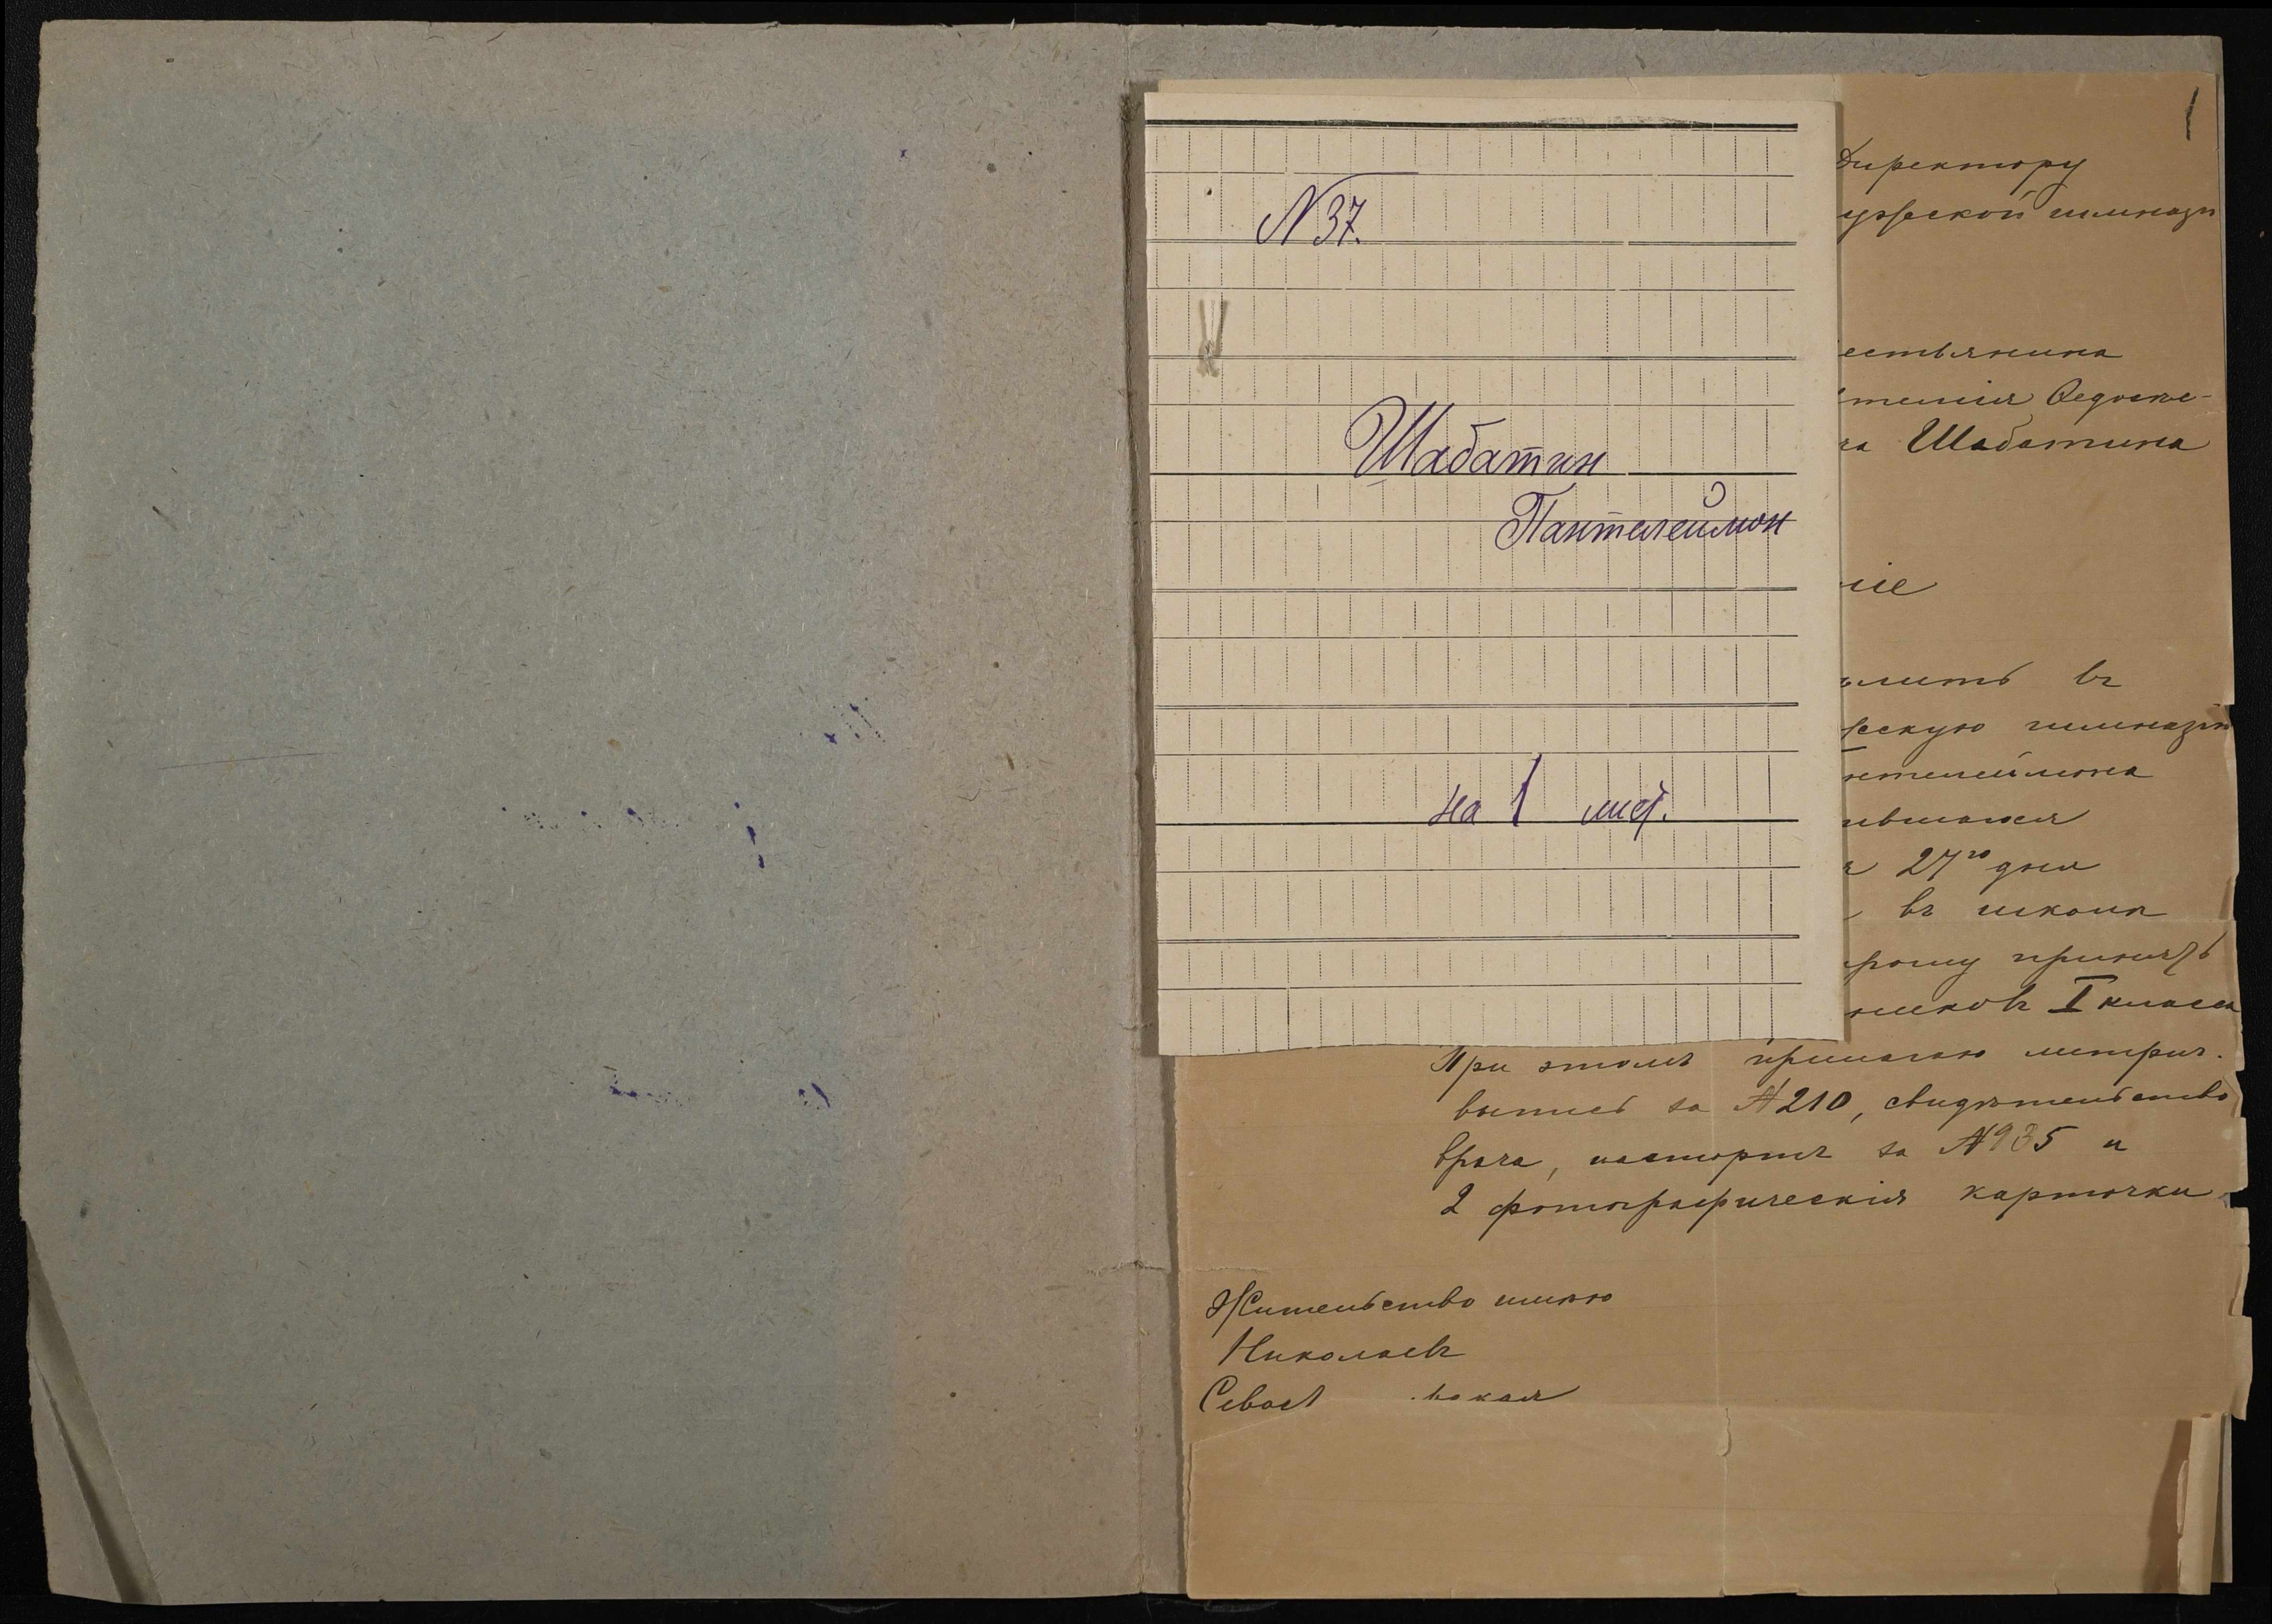 N 37.
Шабатин
Пантелеймон
на 1 лист.
1
Директору
ужской гимнази
естьянина
тенія Ѳедоске-
ча Шабатина
ніе
олить въ
жскую гимназію
нтелеймона
ившагося
27го дня
въ школѣ
прошу принять
никовъ I класса
При этомъ прилагаю метрич.
выпись за №210, свидѣтельство
врача, паспортъ за №935 и
2 фотографическія карточки
Жительство имѣю
Николаевъ
Севаст ская